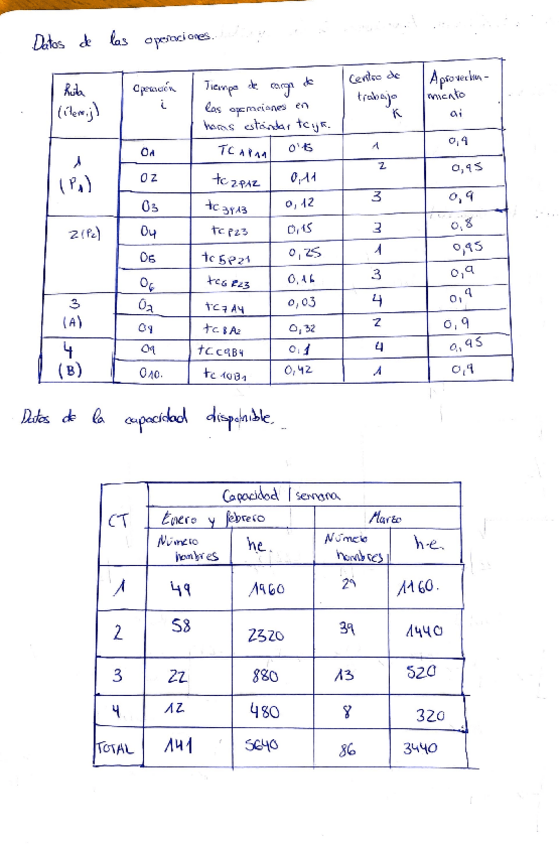 Datos de las operaciones.
Ruta (ítem,j) Operación i Tiempo de carga de las operaciones en horas estándar tcijk. Centro de trabajo K Aprovechamiento ai
1 (P1) O1 TC1P11 0'15 1 0,9
O2 tc2P12 0,11 2 0,95
O3 tc3P13 0,12 3 0,9
2 (P2) O4 tcP23 0,15 3 0,8
O5 tc5P21 0,25 1 0,95
O6 tc6P23 0,16 3 0,9
3 (A) O7 tc7A4 0,03 4 0,9
O8 tc8A2 0,32 2 0,9
4 (B) O9 tcC9B4 0,1 4 0,95
O10. tc10B1 0,42 1 0,9
Datos de la capacidad disponible.
CT Capacidad / semana
Enero y febrero Marzo
Número hombres h.e. Número hombres h.e.
1 49 1960 29 1160.
2 58 2320 39 1440
3 22 880 13 520
4 12 480 8 320
TOTAL 141 5640 86 3440